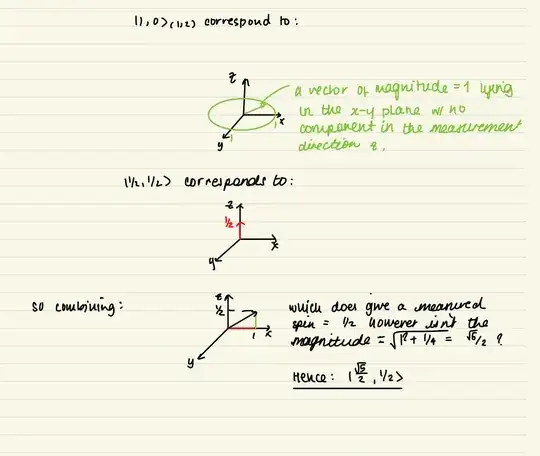 |1,0>(1,2) correspond to:
z
a vector of magnitude = 1 lying
in the x-y plane w/ no
component in the measurement
direction z.
x
y
1
1
|1/2,1/2> corresponds to:
z
1/2
x
y
so combining:
z
1/2
1
x
y
which does give a measured
spin = 1/2 however isn't the
magnitude = √1²+1/4 = √5/2 ?
Hence: |√5/2, 1/2>